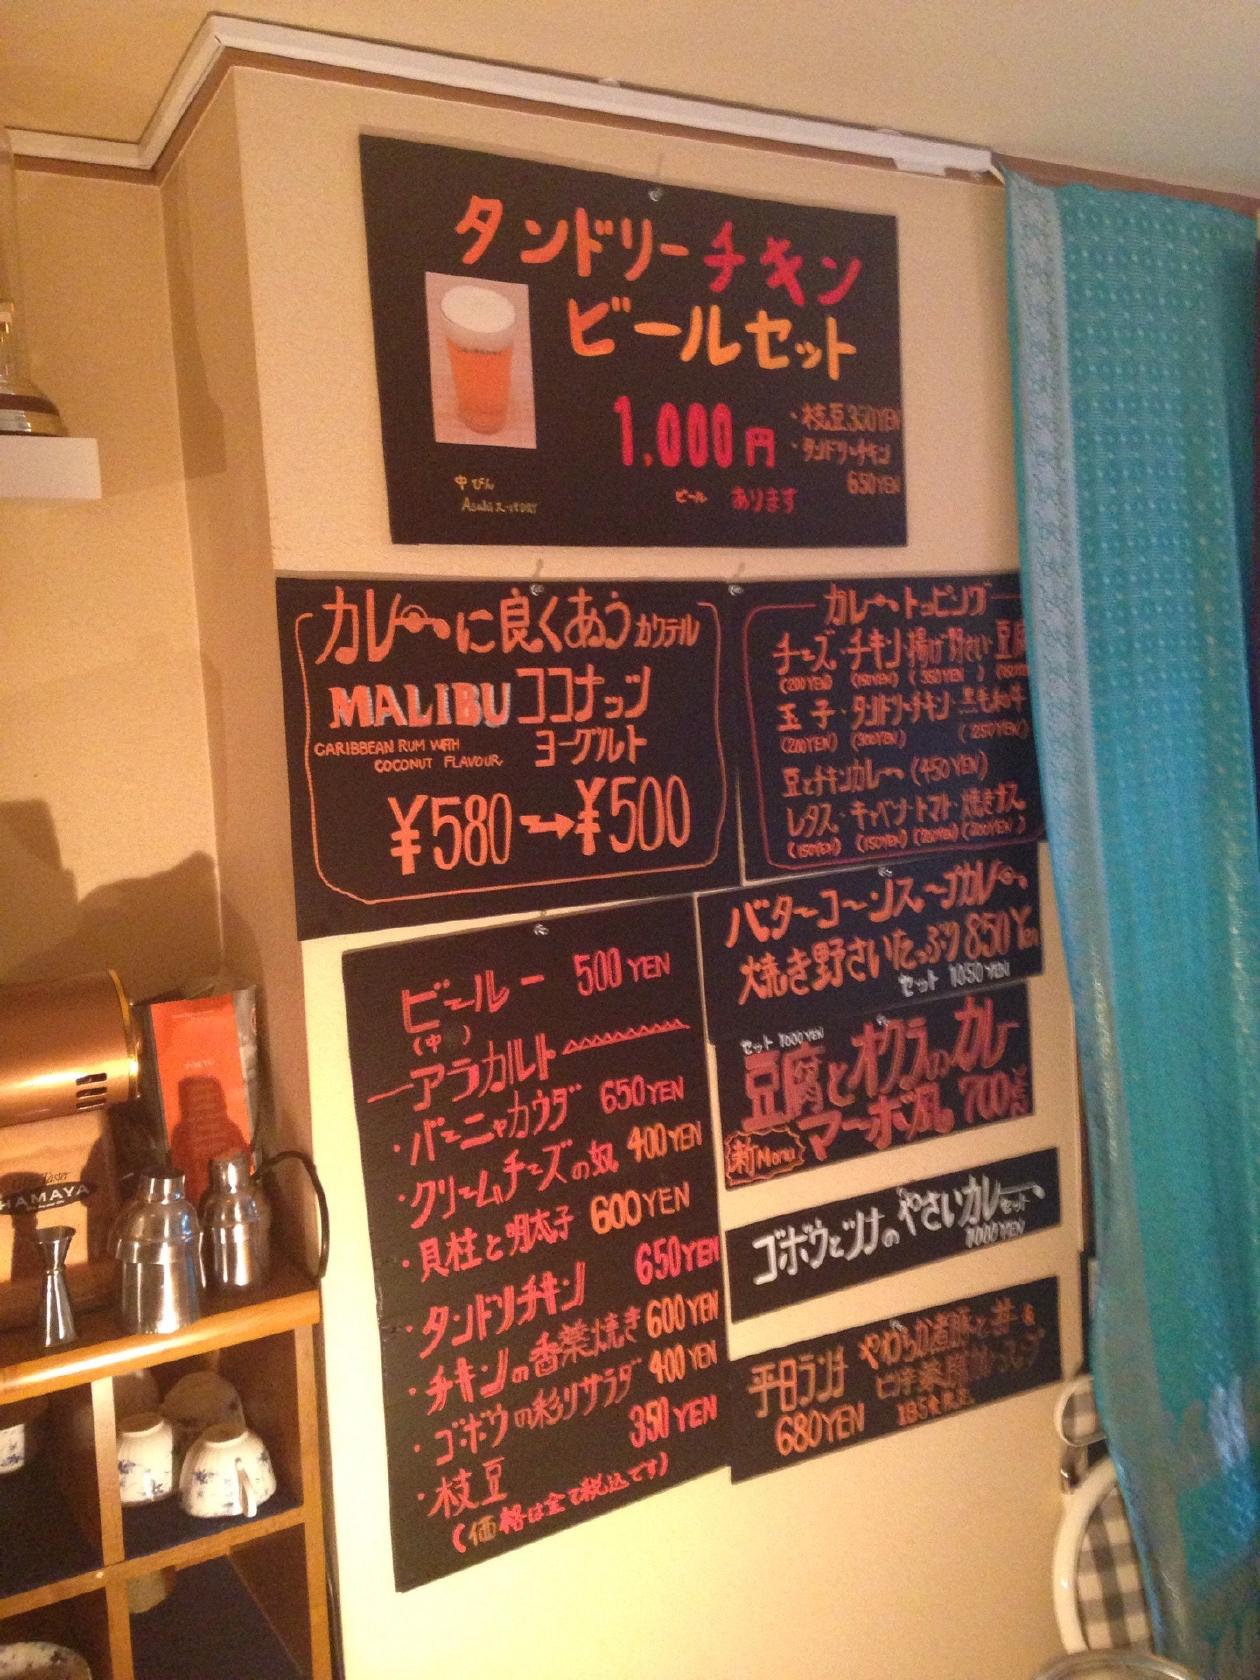 タンドリーチキン
ビールセット
1,000円
・枝豆350YEN
・タンドリーチキン
650YEN
中びん
Asahi スーパーDRY
ビール あります
カレーに良くあうカクテル
MALIBU ココナッツ
ヨーグルト
CARIBBEAN RUM WITH
COCONUT FLAVOUR
¥580→¥500
カレートッピング
チーズ・チキン・揚げ野さい・豆腐
(200YEN) (150YEN) (350YEN)
玉子・タンドリーチキン・黒毛和牛
(200YEN) (300YEN) (250YEN)
豆とチキンカレー (450YEN)
レタス・キャベツ・トマト・焼きナス
(150YEN) (150YEN) (200YEN) (200YEN)
バターコーンスープカレー
焼き野さいたっぷり 850Yen
セット 1050YEN
セット 1000YEN
豆腐とオクラのカレー
マーボ風 700YEN
新Menu
ゴボウとツナのやさいカレー セット
1000YEN
平日ランチ
680YEN
やわらか煮豚と丼&
1日5食限定
ビール 500YEN
(中)
アラカルト
・バーニャカウダ 650YEN
・クリームチーズの奴 400YEN
・貝柱と明太子 600YEN
・タンドリチキン 650YEN
・チキンの香菜焼き 600YEN
・ゴボウの彩りサラダ 400YEN
・枝豆 350YEN
(価格は全て税込です)
HAMAYA